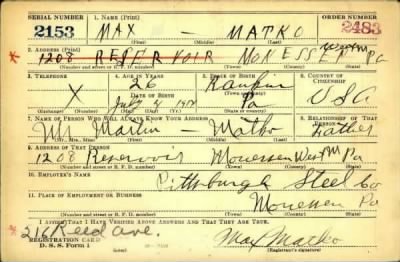 SERIAL NUMBER 1. NAME (Print) ORDER NUMBER
2153 MAX — MATKO 2483
(First) (Middle) (Last)
2. ADDRESS (Print)
1208 RESERVOIR MONESSEN WESTM PA
(Number and street or R. F. D. number) (Town) (County) (State)
3. TELEPHONE 4. AGE IN YEARS 5. PLACE OF BIRTH 6. COUNTRY OF CITIZENSHIP
X 26 Rankin
DATE OF BIRTH (Town or county)
July Pa USA
(Exchange) (Number) (Mo.) (Day) (Yr.) (State or country)
7. NAME OF PERSON WHO WILL ALWAYS KNOW YOUR ADDRESS 8. RELATIONSHIP OF THAT PERSON
Mr. Martin — Matko Father
(Mr., Mrs., Miss) (First) (Middle) (Last)
9. ADDRESS OF THAT PERSON
1208 Reservoir Monessen Westm Pa
(Number and street or R. F. D. number) (Town) (County) (State)
10. EMPLOYER'S NAME
Pittsburgh Steel Co
11. PLACE OF EMPLOYMENT OR BUSINESS
Monessen Pa
(Number and street or R. F. D. number) (Town) (County) (State)
I AFFIRM THAT I HAVE VERIFIED ABOVE ANSWERS AND THAT THEY ARE TRUE.
216 Reed ave.
REGISTRATION CARD
D. S. S. Form 1 Max Matko
(Registrant's signature)